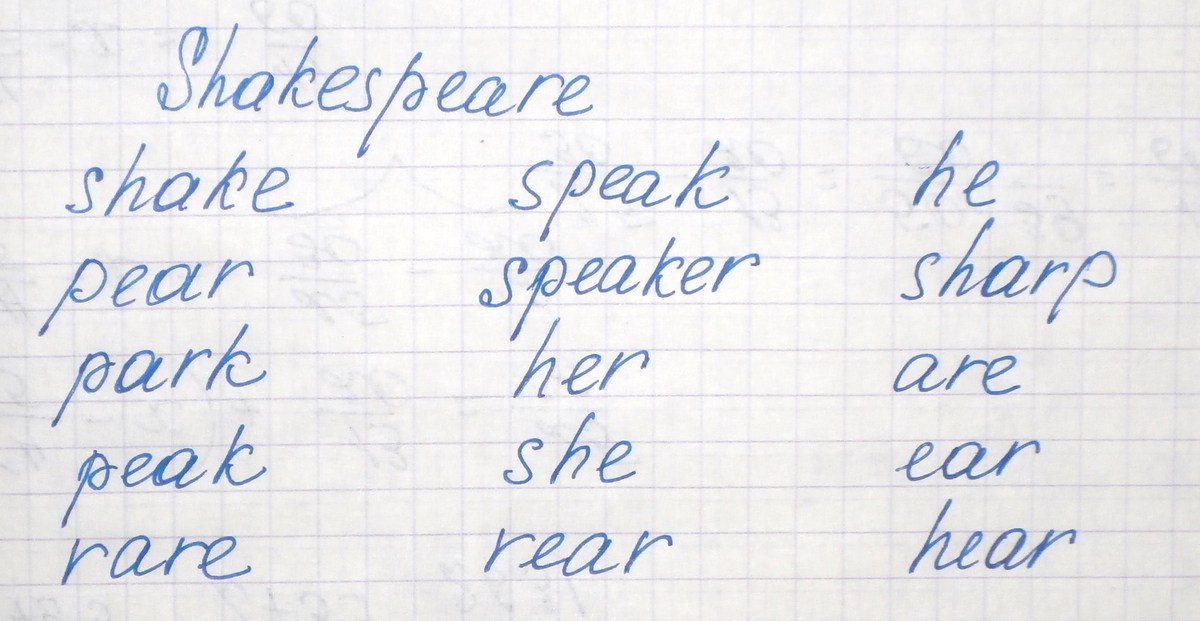 Shakespeare
shake speak he
pear speaker sharp
park her are
peak she ear
rare rear hear